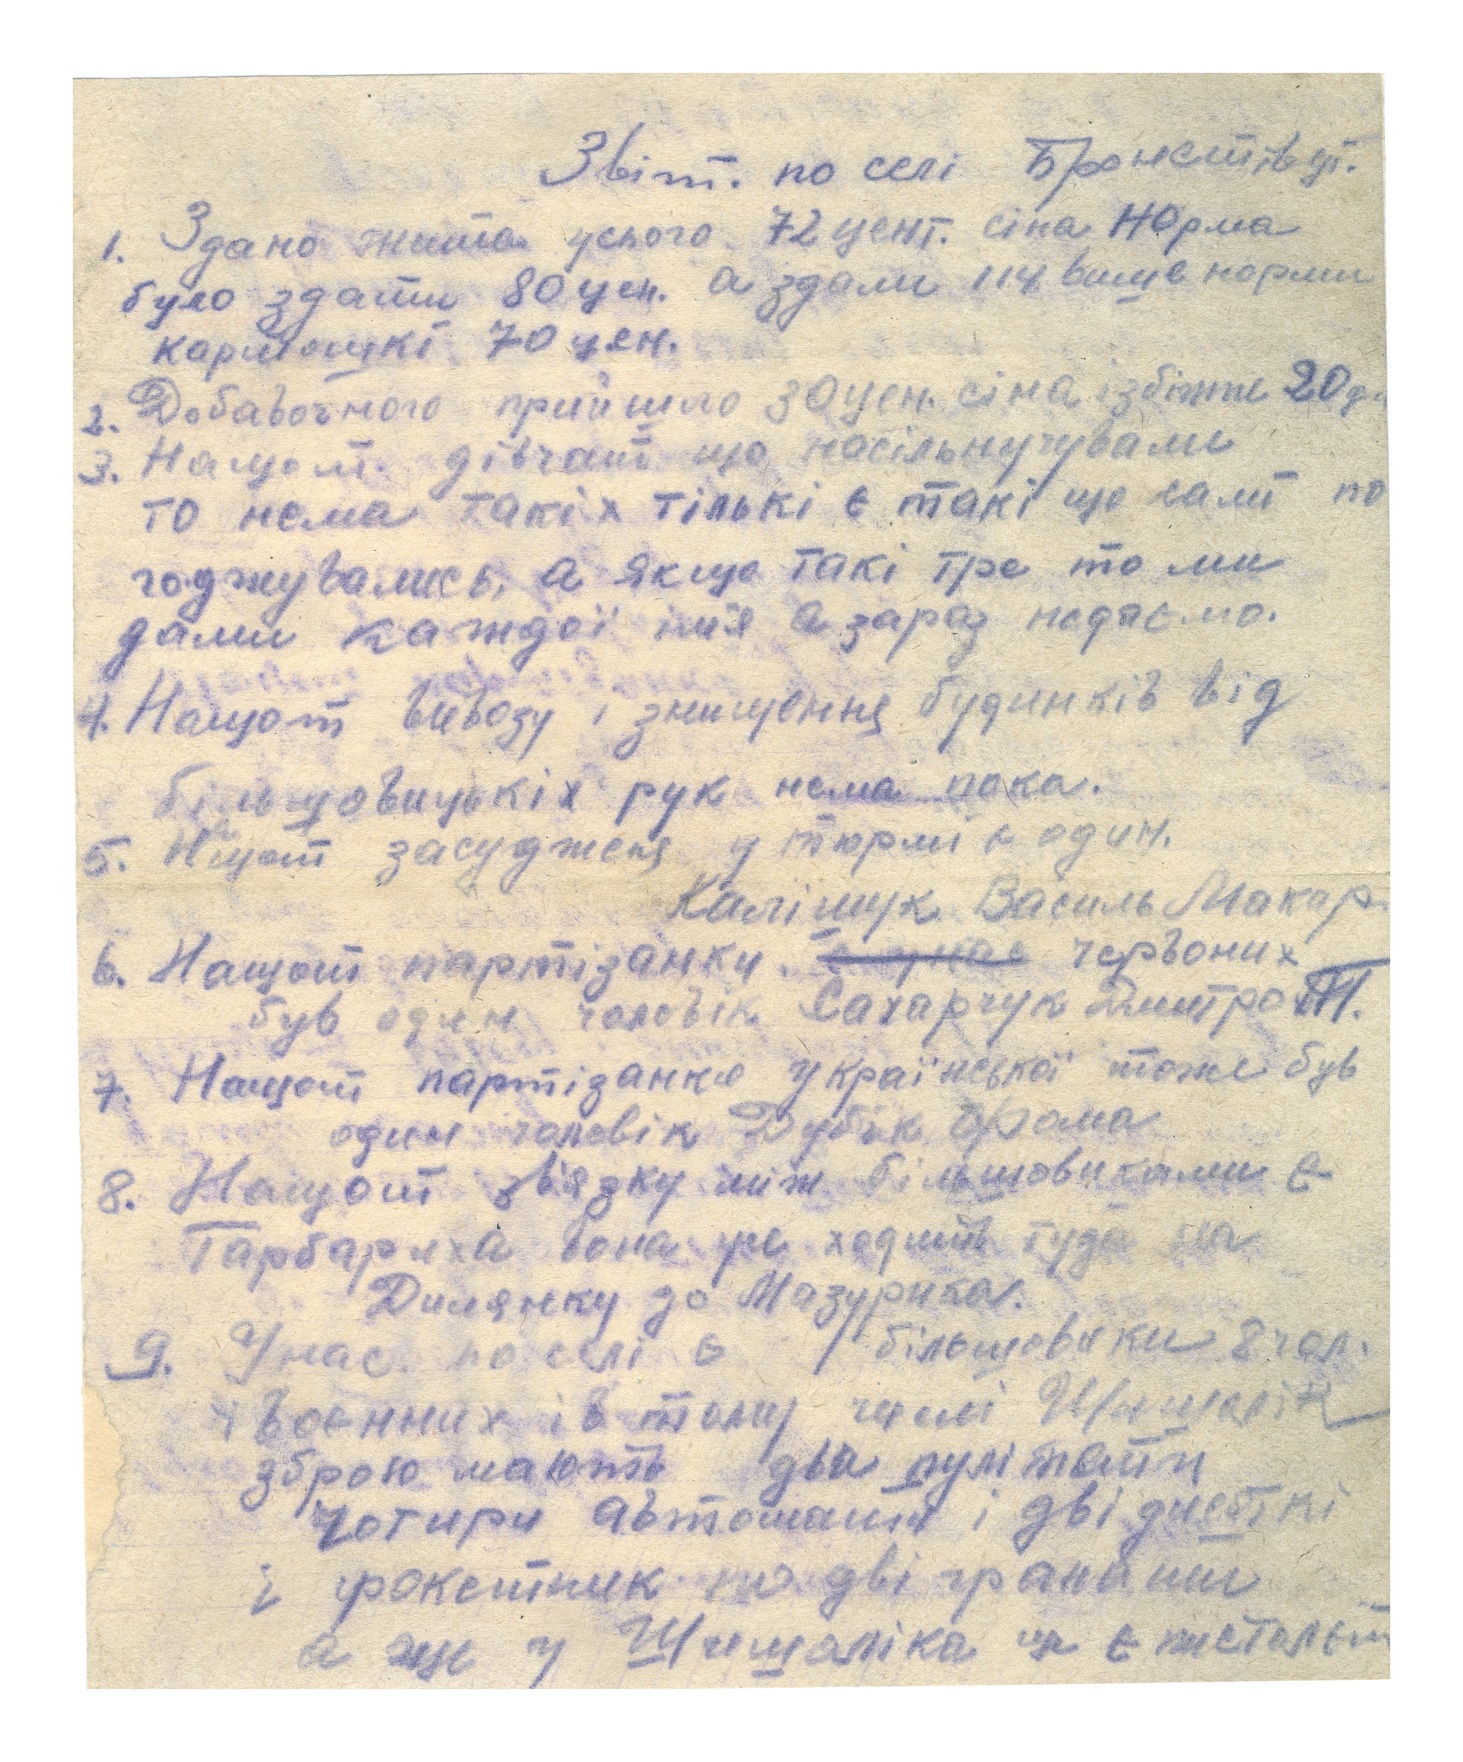 Звіт. по селі
1. Здано жита усього 72 цент. сіна Норма
було здати 80 цен. а здали 114 вище норми
картошкі 70 цен.
2. Добавочного прийшло 30 цен. сіна і збіжже 20 ц.
3. Нащот дівчат що насільнучували
то нема такіх тількі є такі що самі по
годжувались, а якщо такі тре то ми
дами каждої імʼя а зараз недаємо.
4. Нащот вивозу і знищення будинків від
більшовицькіх рук нема пока.
5. Нащот засудженя у тюрмі є один.
Каліщук Василь Макар.
6. Нащот партізанки. червоних
був один чоловік Сахарчук Дмитро М.
7. Нащот партізанкі української тоже був
один чоловік Дубік Фома
8. Нащот звʼязку між більшовиками є
Гарбариха вона уже ходить туда на
Дилянку до Мазурика.
9. У нас по селі є більшовики 8 чол.
і военних і в тому числі Шишалік
зброю мають два пулімети
чотири автомати і дві
і ракетник по дві гранати
а ще у Шишаліка ще є пістальєт